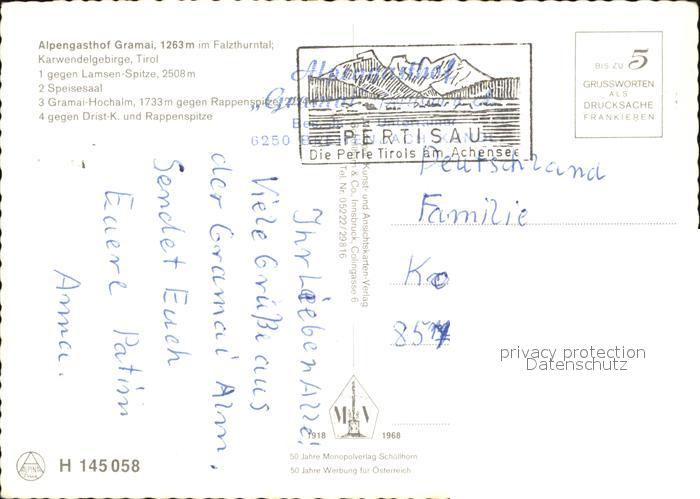 Alpengasthof Gramai, 1263 m im Falzthurntal;
Karwendelgebirge, Tirol
1 gegen Lamsen-Spitze, 2508 m
2 Speisesaal
3 Gramai-Hochalm, 1733 m gegen Rappenspitze
4 gegen Drist-K. und Rappenspitze
Alpengasthof
„Gramai
6250
PERTISAU
Die Perle Tirols am Achensee
BIS ZU 5
GRUSSWORTEN
ALS
DRUCKSACHE
FRANKIEREN
Ihr Lieben Alle!
Viele Grüße aus
der Gramai Alm.
Sendet Euch
Euere Patin
Anna.
Kunst- und Ansichtskarten-Verlag
& Co., Innsbruck, Colingasse 6
Tel. Nr. 05222/29816
Deutschland
Familie
privacy protection
Datenschutz
M V
1918 1968
50 Jahre Monopolverlag Schöllhorn
50 Jahre Werbung für Österreich
ALPINA
H 145058